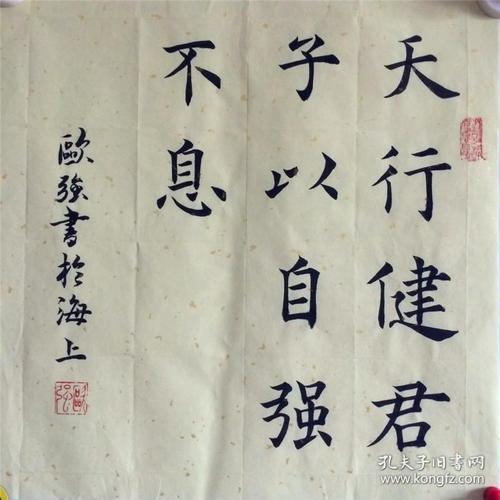 天行健君
子以自强
不息
歐強書於海上
孔夫子旧书网
www.kongfz.com